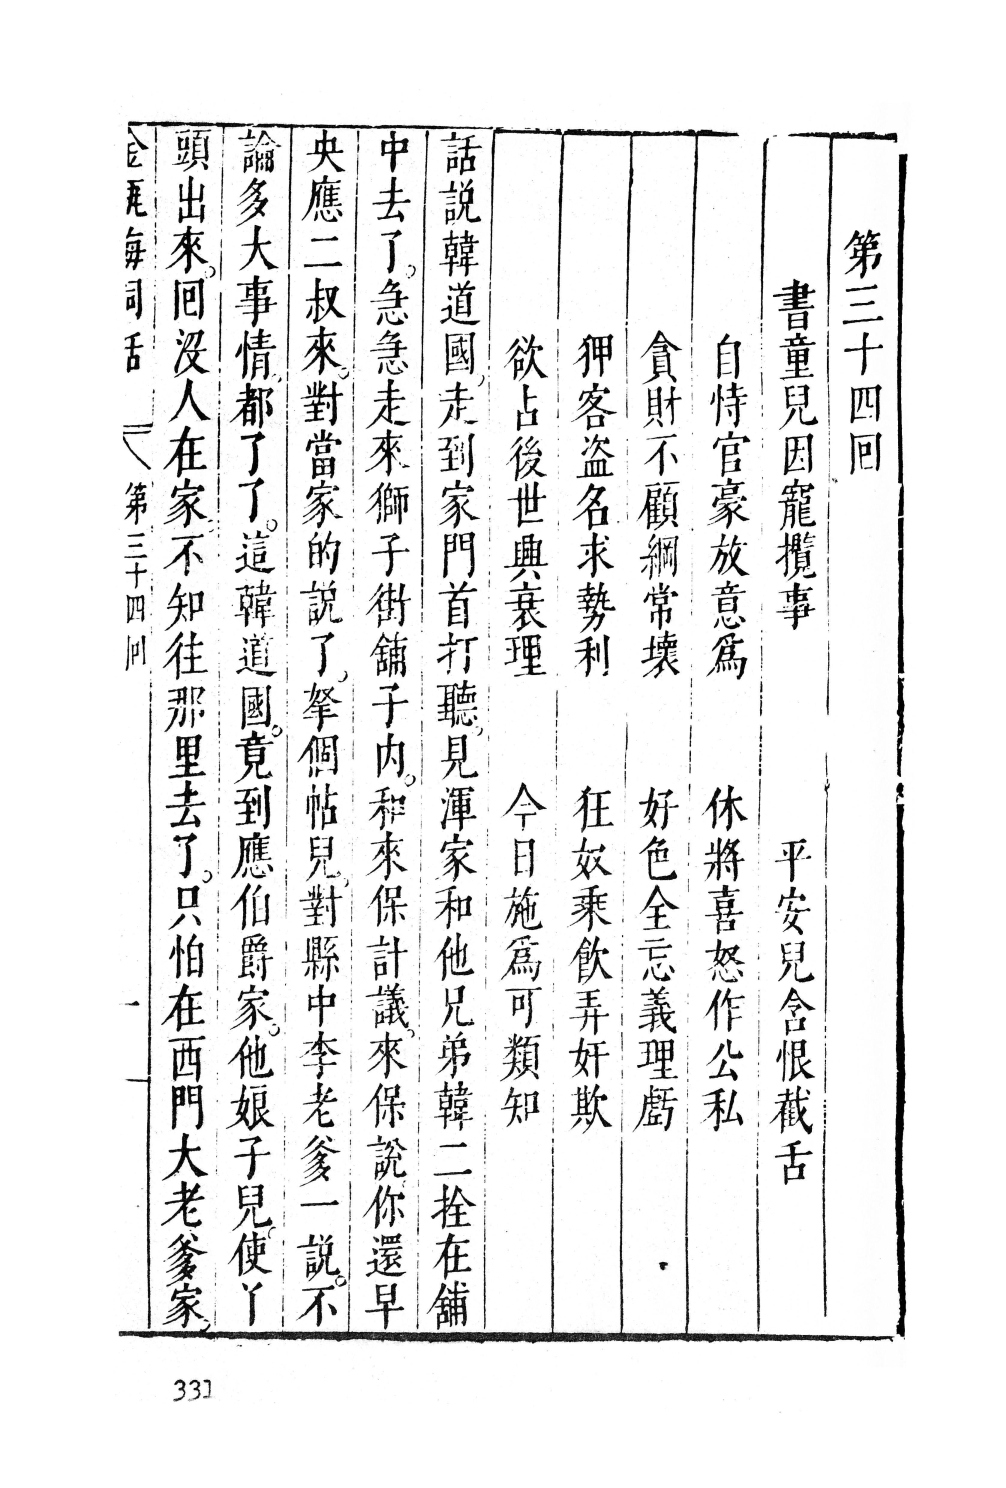 第三十四回
書童兒因寵攬事　平安兒含恨截舌
自恃官豪放意爲　休將喜怒作公私
貪財不顧綱常壞　好色全忘義理虧
狎客盜名求勢利　狂奴乘飲弄奸欺
欲占後世興衰理　今日施爲可類知
話說韓道國走到家門首打聽見渾家和他兄弟韓二拴在舖
中去了急急走來獅子街舖子內和來保計議來保說你還早
央應二叔來對當家的說了拏個帖兒對縣中李老爹一說不
論多大事情都了了這韓道國竟到應伯爵家他娘子兒使丫
頭出來回沒人在家不知往那里去了只怕在西門大老爹家
金瓶梅詞話　第三十四回　一
331